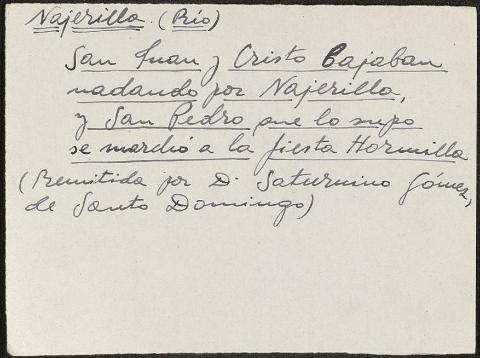 Najerilla. (Río)
San Juan y Cristo bajaban
nadando por Najerilla,
y San Pedro que lo supo
se marchó a la fiesta Hormilla
(Remitida por D. Saturnino Gómez,
de Santo Domingo)